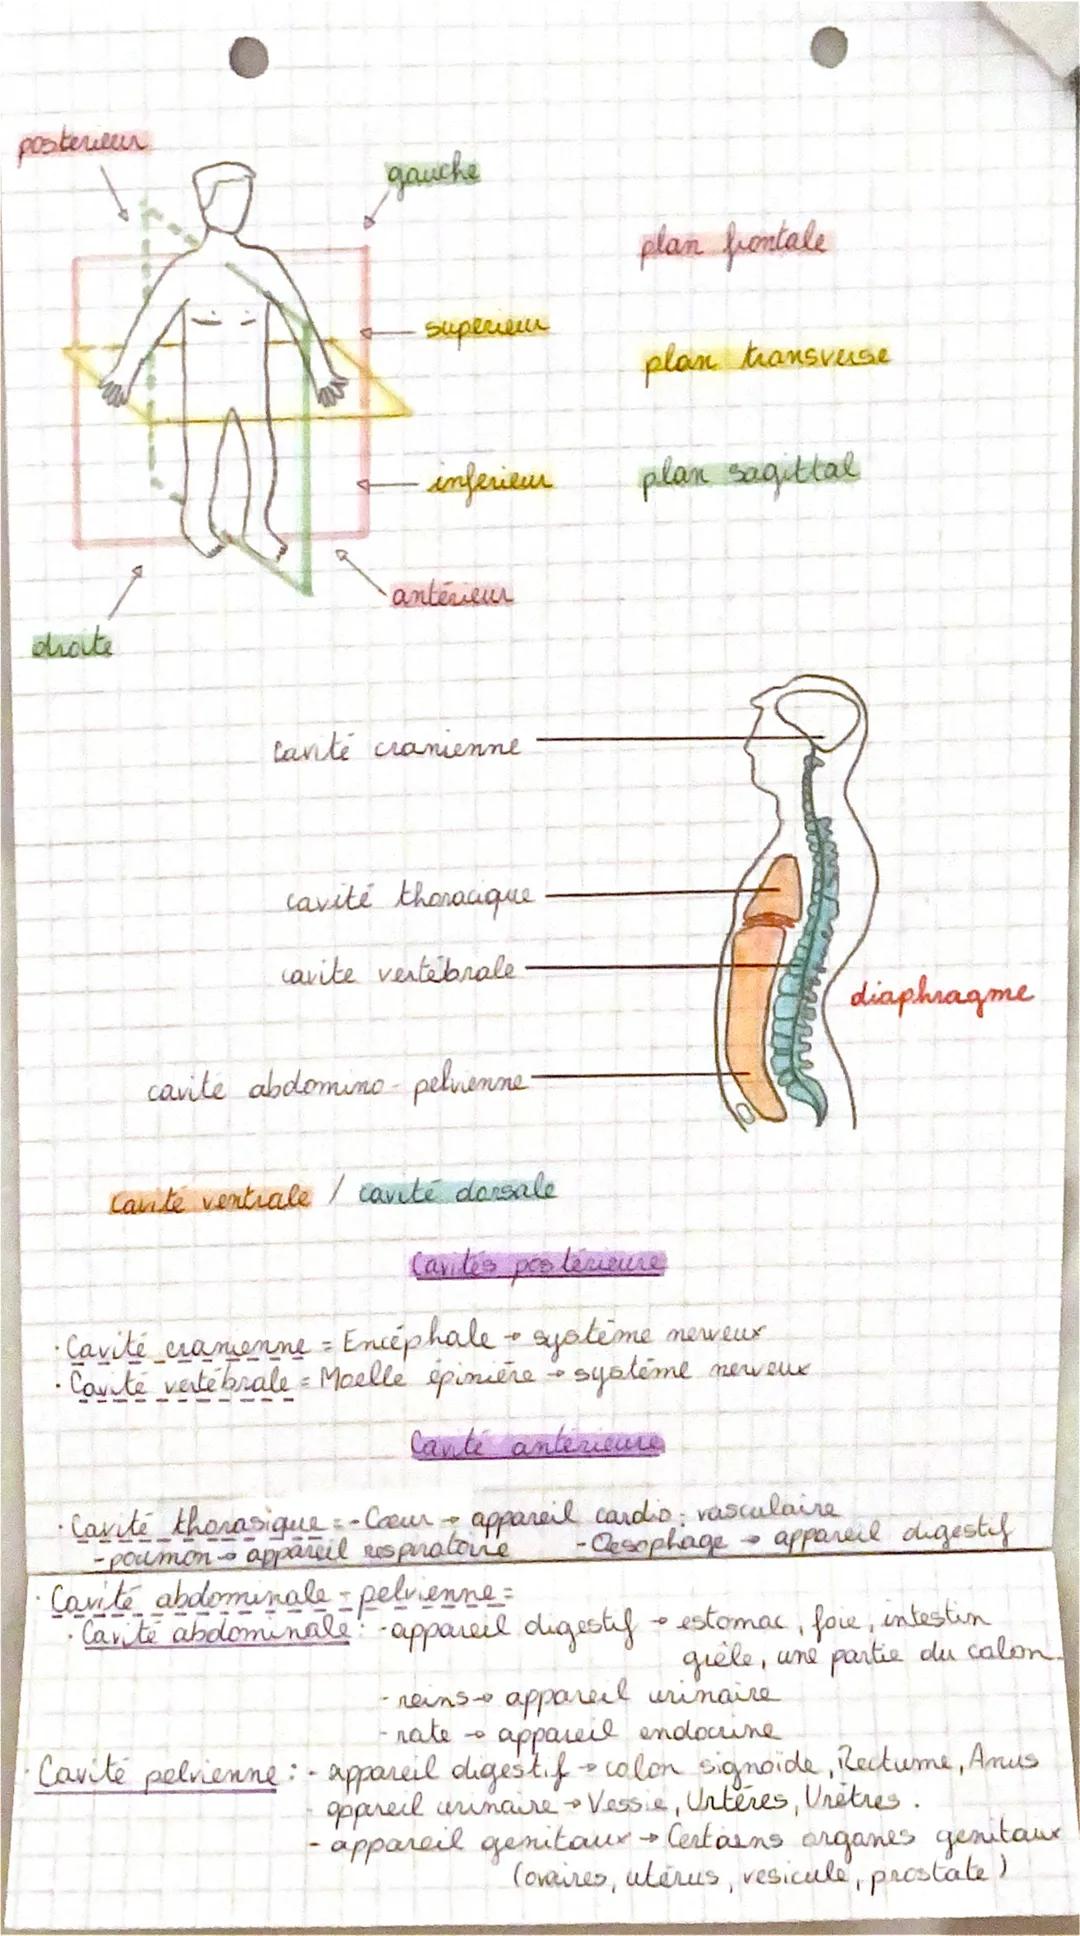 posterieur
gauche
plan frontale
superieur
plan transverse
inferieur
plan sagittal
antérieur
droite
cavité cranienne
cavité thoracique
cavite vertébrale
diaphragme
cavite abdomino-pelvienne
Cavité ventrale / cavité dorsale
Cavités postérieure
· Cavité cranienne = Encéphale → système nerveux
· Cavité vertébrale = Moelle épinière → système nerveux
Cavité antérieure
· Cavité thorasique = - Coeur → appareil cardio: vasculaire
- poumon → appareil respiratoire - Oesophage → appareil digestif
· Cavité abdominale - pelvienne =
· Cavité abdominale : - appareil digestif → estomac, foie, intestin
grêle, une partie du colon.
- reins → appareil urinaire
- rate → appareil endocrine
· Cavité pelvienne : - appareil digestif → colon signoïde, Rectume, Anus
- appareil urinaire → Vessie, Urtères, Urètres.
- appareil genitaux → Certains organes genitaux
(ovaires, utérus, vesicule, prostate)